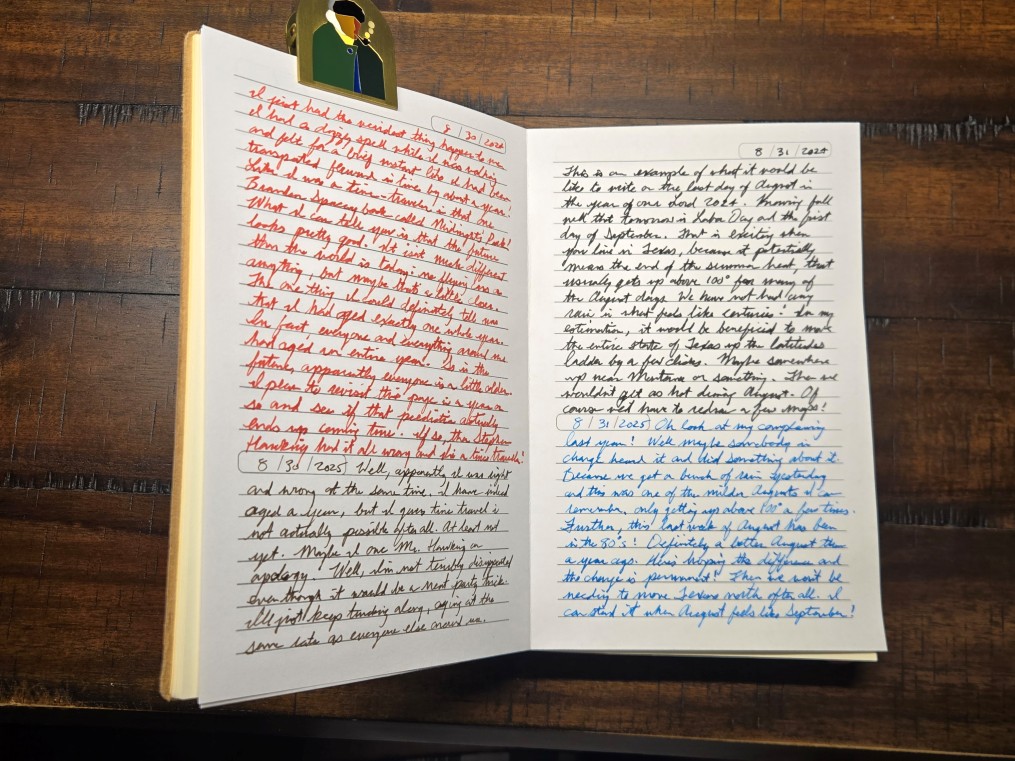 8 / 30 / 2024
I just had the weirdest thing happen to me.
I had a dizzy spell while I was walking
and felt for a brief instant like I had been
transported forward in time by about a year!
Like I was a time-traveler in that one
Brandon book called Midnight's
What I can tell you is that the future
looks pretty good. It isn't much different
than the world is today: no flying cars or
anything, but maybe that's a little close.
The one thing I could definitely tell was
that I had aged exactly one whole year.
In fact everyone and everything around me
had aged an entire year! So in the
future, apparently everyone is a little older.
I plan to revisit this page in a year or
so and see if that prediction actually
ends up coming true. If so, then Stephen
Hawking had it all wrong and I'm a time traveler!
8 / 30 / 2025 Well, apparently I was right
and wrong at the same time. I have indeed
aged a year, but I guess time travel is
not actually possible after all. At least not
yet. Maybe I owe Mr. Hawking an
apology. Well, I'm not terribly disappointed
even though it would be a neat party trick.
I'll just keep trucking along, aging at the
same rate as everyone else around me.
8 / 31 / 2024
This is an example of what it would be
like to write on the last day of August in
the year of our Lord 2024. Knowing full
well that tomorrow is Labor Day and the first
day of September. That is exciting when
you live in Texas, because it potentially
means the end of the summer heat, that
usually gets up above 100° for many of
the August days. We have not had any
rain in what feels like centuries! In my
estimation, it would be beneficial to move
the entire state of Texas up the latitudes
ladder by a few clicks. Maybe somewhere
up near Montana or something. Then we
wouldn't get as hot during August. Of
course we'd have to redraw a few maps!
8 / 31 / 2025 Oh look at my complaining
last year! Well maybe somebody in
charge heard it and did something about it.
Because we got a bunch of rain yesterday
and this was one of the milder Augusts I can
remember, only getting up above 100° a few times.
Further, this last week of August has been
in the 80's! Definitely a better August than
a year ago. Here's hoping the difference and
the change is permanent! Then we won't be
needing to move Texas north after all. I
can stand it when August feels like September!